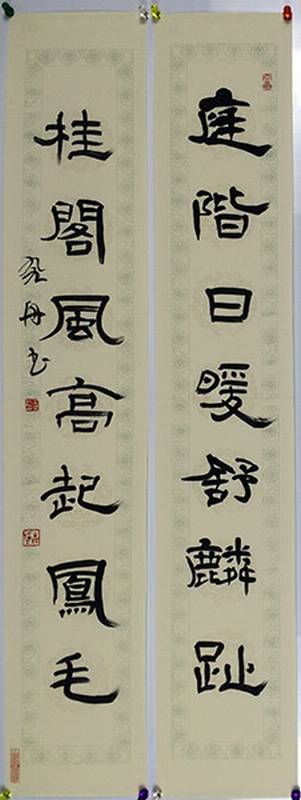 庭階日暖舒麟趾
桂閣風高起鳳毛